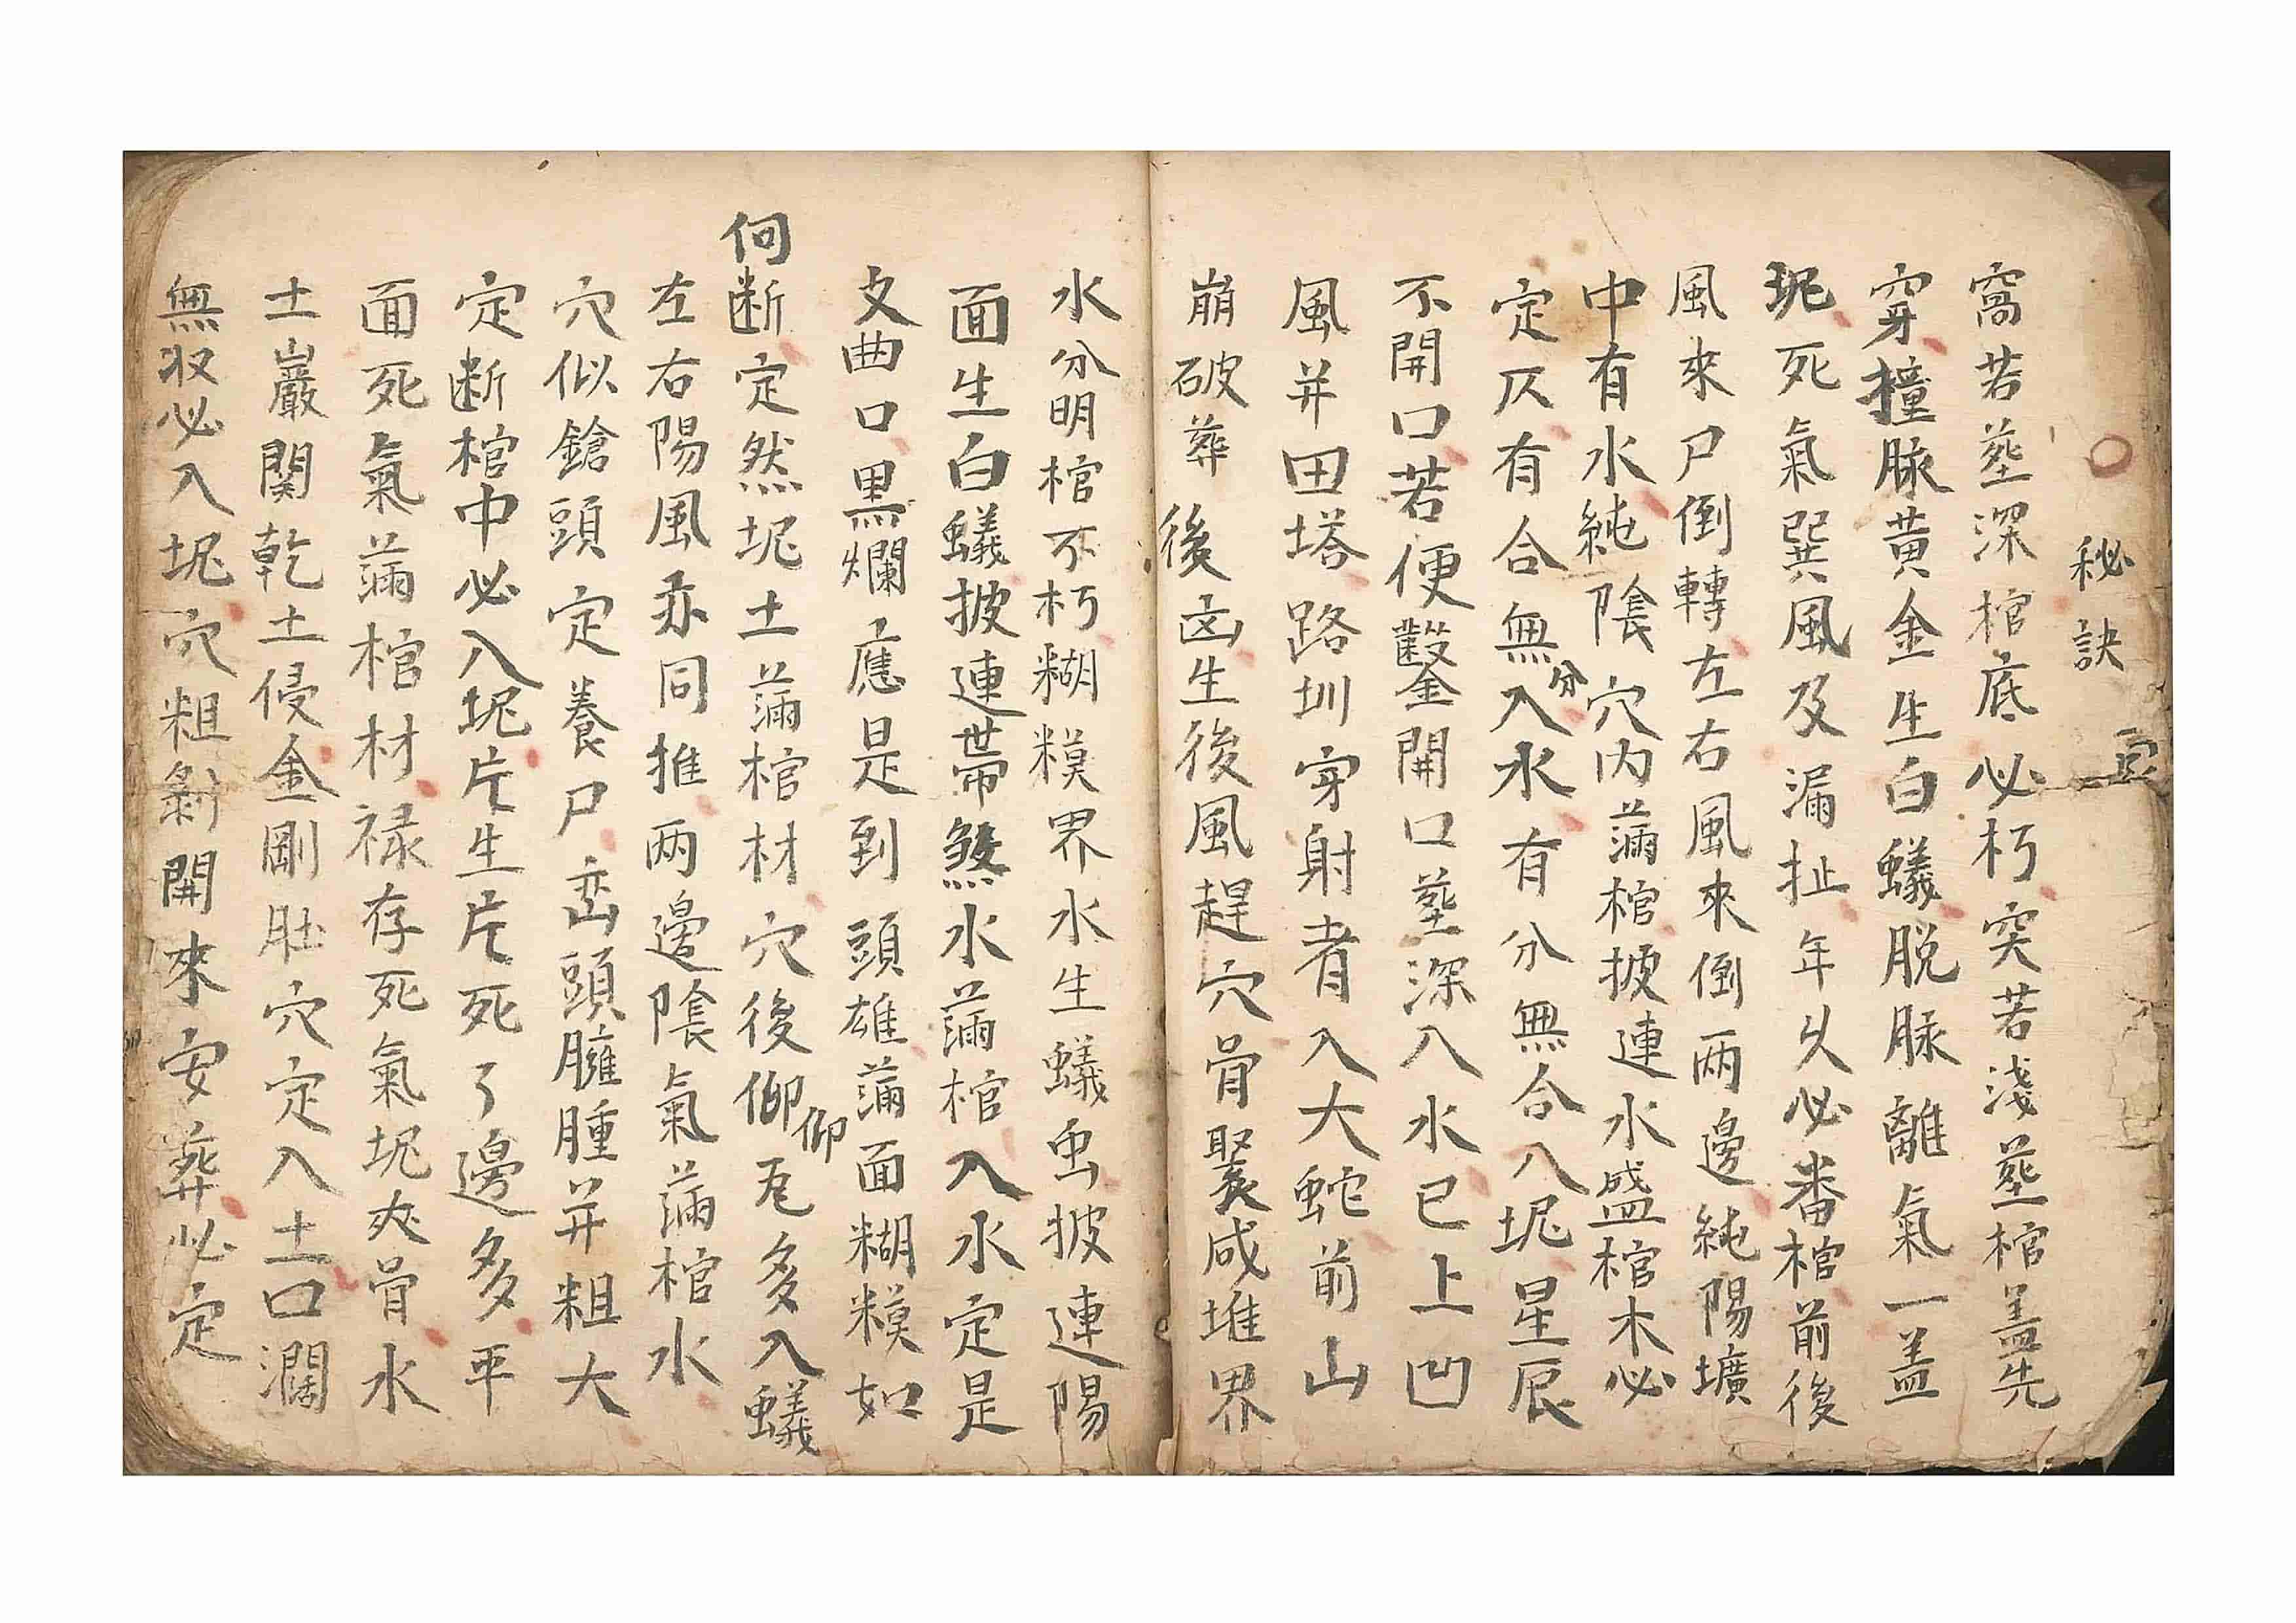 秘訣
窩若塟深棺底必朽突若淺塟棺盖先
穿撞脉黄金生白蟻脱脉離氣一盖
坭死氣巽風及漏扯年乆必番棺前後
風來尸倒轉左右風來倒两邊純陽壙
中有水純陰穴内蒲棺披連水盛棺木必
定仄有合無分入水有分無合八坭星辰
不開口若便鑿開口塟深八水已上凹
風并田塔路圳穿射者入大蛇前山
崩破葬後凶生後風趕穴骨聚成堆界
水分明棺不朽糊糢界水生蟻虫披連陽
面生白蟻披連帯煞水蒲棺入水定是
文曲口黒爛應是到頭雄蒲面糊糢如
何断定然坭土蒲棺材穴後仰仰瓦多入蟻
左右陽風亦同推两邊陰氣蒲棺水
穴似鎗頭定養尸巒頭臃腫并粗大
定断棺中必入坭片生片死了邊多平
面死氣蒲棺材禄存死氣坭夾骨水
土巖関乾土侵金剛肚穴定入土口濶
無収必入坭穴粗剝開來安葬必定